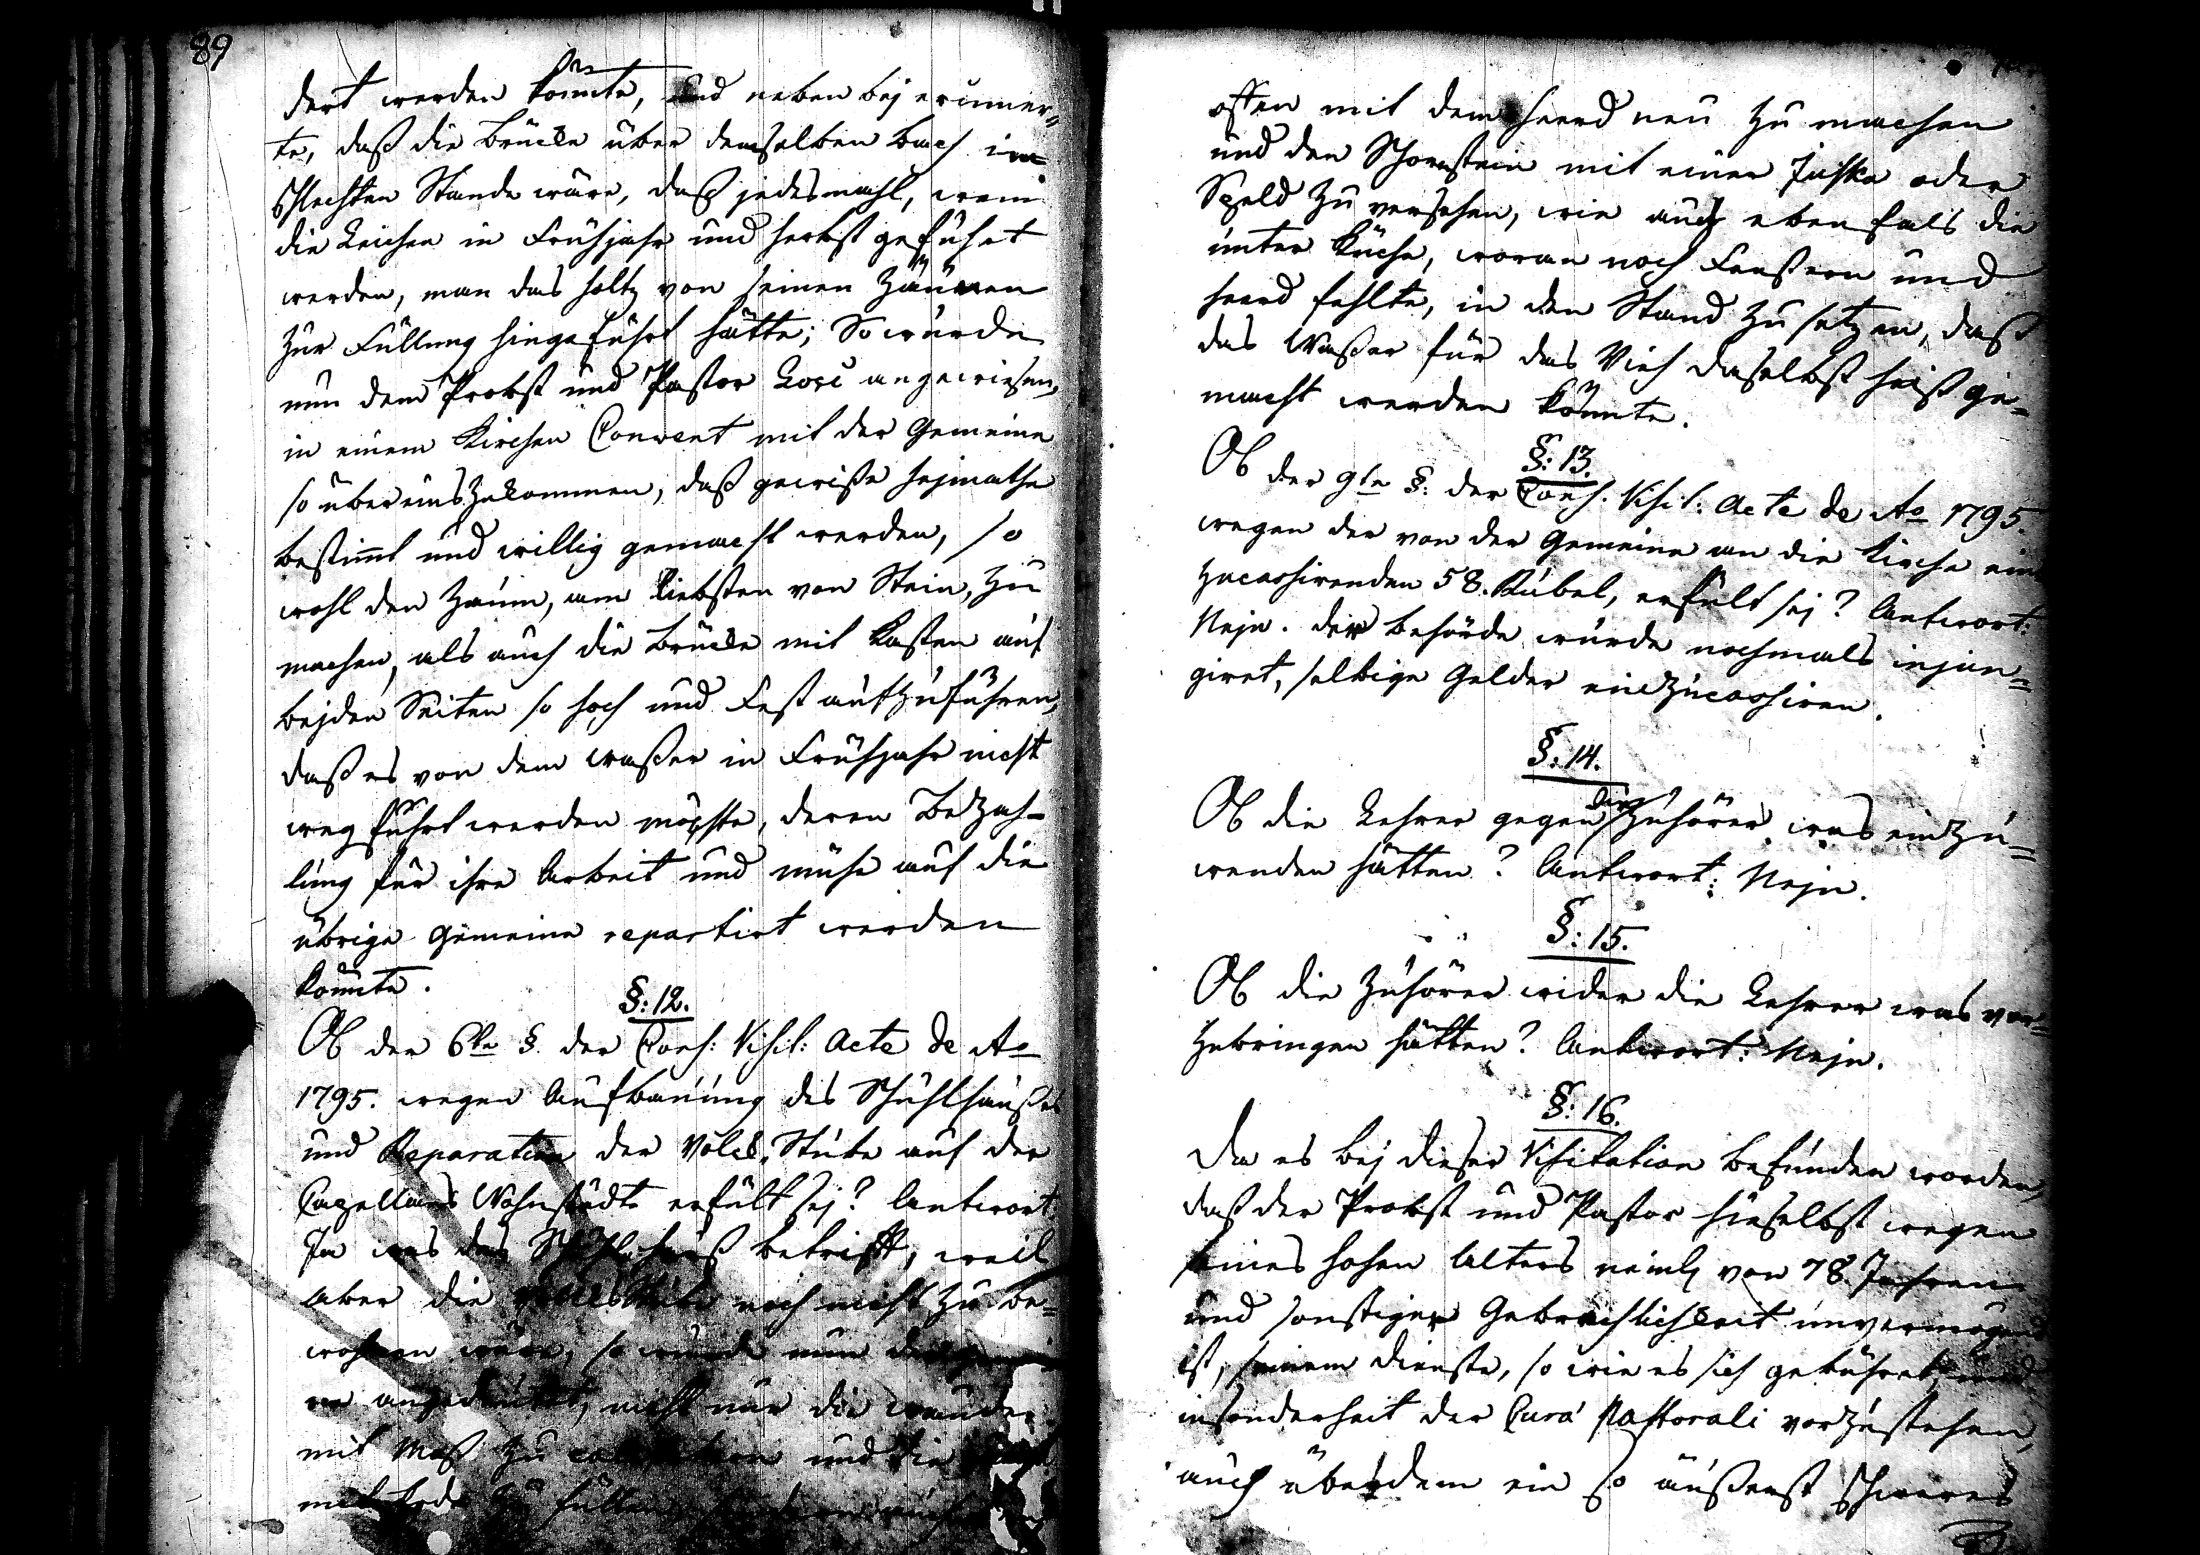 89
dert werden könnte, und neben bej erinner=
te, daß die Brücke über demselben Bach im
schlechten Stande wäre, daß jedesmahl, wenn
die Leichen in Frühjahr und Herbst geführt
werden, man das Holtz von seinen Zäunen
zur Füllung hingeführt hätte; So würde
nun dem Probst und Pastor angewiesen,
in einem Kirchen Convent mit der Gemeine
so übereinszukommen, daß gewiße Hejmathe
bestimt und willig gemacht werden, so
wohl den Zaun, am liebsten von Stein, zu
machen, als auch die Brücke mit Kasten auf
bejden Seiten so hoch und Fest aufzuführen,
daß es von dem Waßer in Frühjahr nicht
weg führt werden möchte, deren Bezah-
lung für ihre Arbeit und mühe auf die
übrige Gemeine repartirt werden
könnte.
§: 12.
Ob der 6te § der Cons: Visit: Acte de Ao
1795. wegen Aufbauung des Schuhlhauses
und Reparation der Volcks Stube auf der
Capellans Wohnstädte erfült sej? Antwort
Ja was das Schuhlhauß betrifft, weil
aber die noch nicht zu be=
wohnen wäre, so wurde nun
ne angedeutet, nicht nur die Wände
mit Moß zu und die
mit Erde zu füllen, sondern auch
offen mit dem Heerd neu zu machen
und den Schornstein mit einer Juschka oder
Speld zu versehen, wie auch eben fals die
unter Küche, woran noch Fenstern und
Heerd fehlte, in den Stand zu setzen, daß
das Waßer für das Vieh daselbst heiß ge=
macht werden könnte.
§: 13.
Ob der 9te §: der Cons. Visit: Acte de Ao 1795.
wegen der von der Gemeine an die Kirche ein
zucassirenden 58. Rubel, erfült sej? Antwort:
Nejn. der Behörde würde nochmals injun=
girt, selbige Gelder eind zucassiren.
§: 14.
Ob die Lehrer gegen die Zuhörer was einzu=
wenden hätten? Antwort: Nejn.
§: 15.
Ob die Zuhörer wider die Lehrer was vor=
zubringen hätten? Antwort: Nejn.
§: 16.
Da es bej dieser Visitation befunden worden,
daß der Probst und Pastor hieselbst wegen
seines hohen Alters neml von 78. Jahren
und sonstiger Gebrechlichkeit unvermögend
ist, seinem Dienste, so wie es sich gebühret, und
insonderheit der Cura Pastorali vorzustehen,
auch überdem ein so äußerst schweres